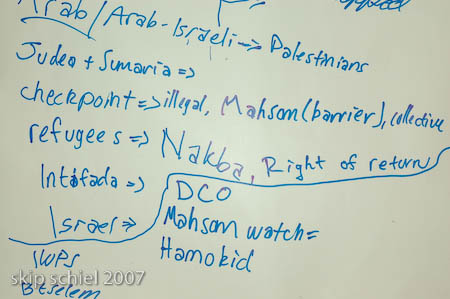 Arab/Arab-Israeli => Palestinians
Judea + Sumaria =>
checkpoint => illegal, Mahsom (barrier), collective
refugees => Nakba, Right of return
Intifada =>
DCO
Israel => Mahsom watch =
Hamokid
IWPS
Bitselem
skip schiel 2007